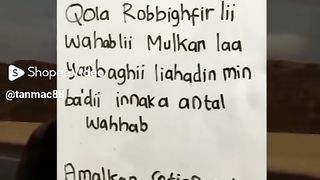 Qola Robbighfir lii
wahablii Mulkan laa
liahadin min
ba'dii innaka antal
wahhab
Amalkan
Shopee
@tanmac88